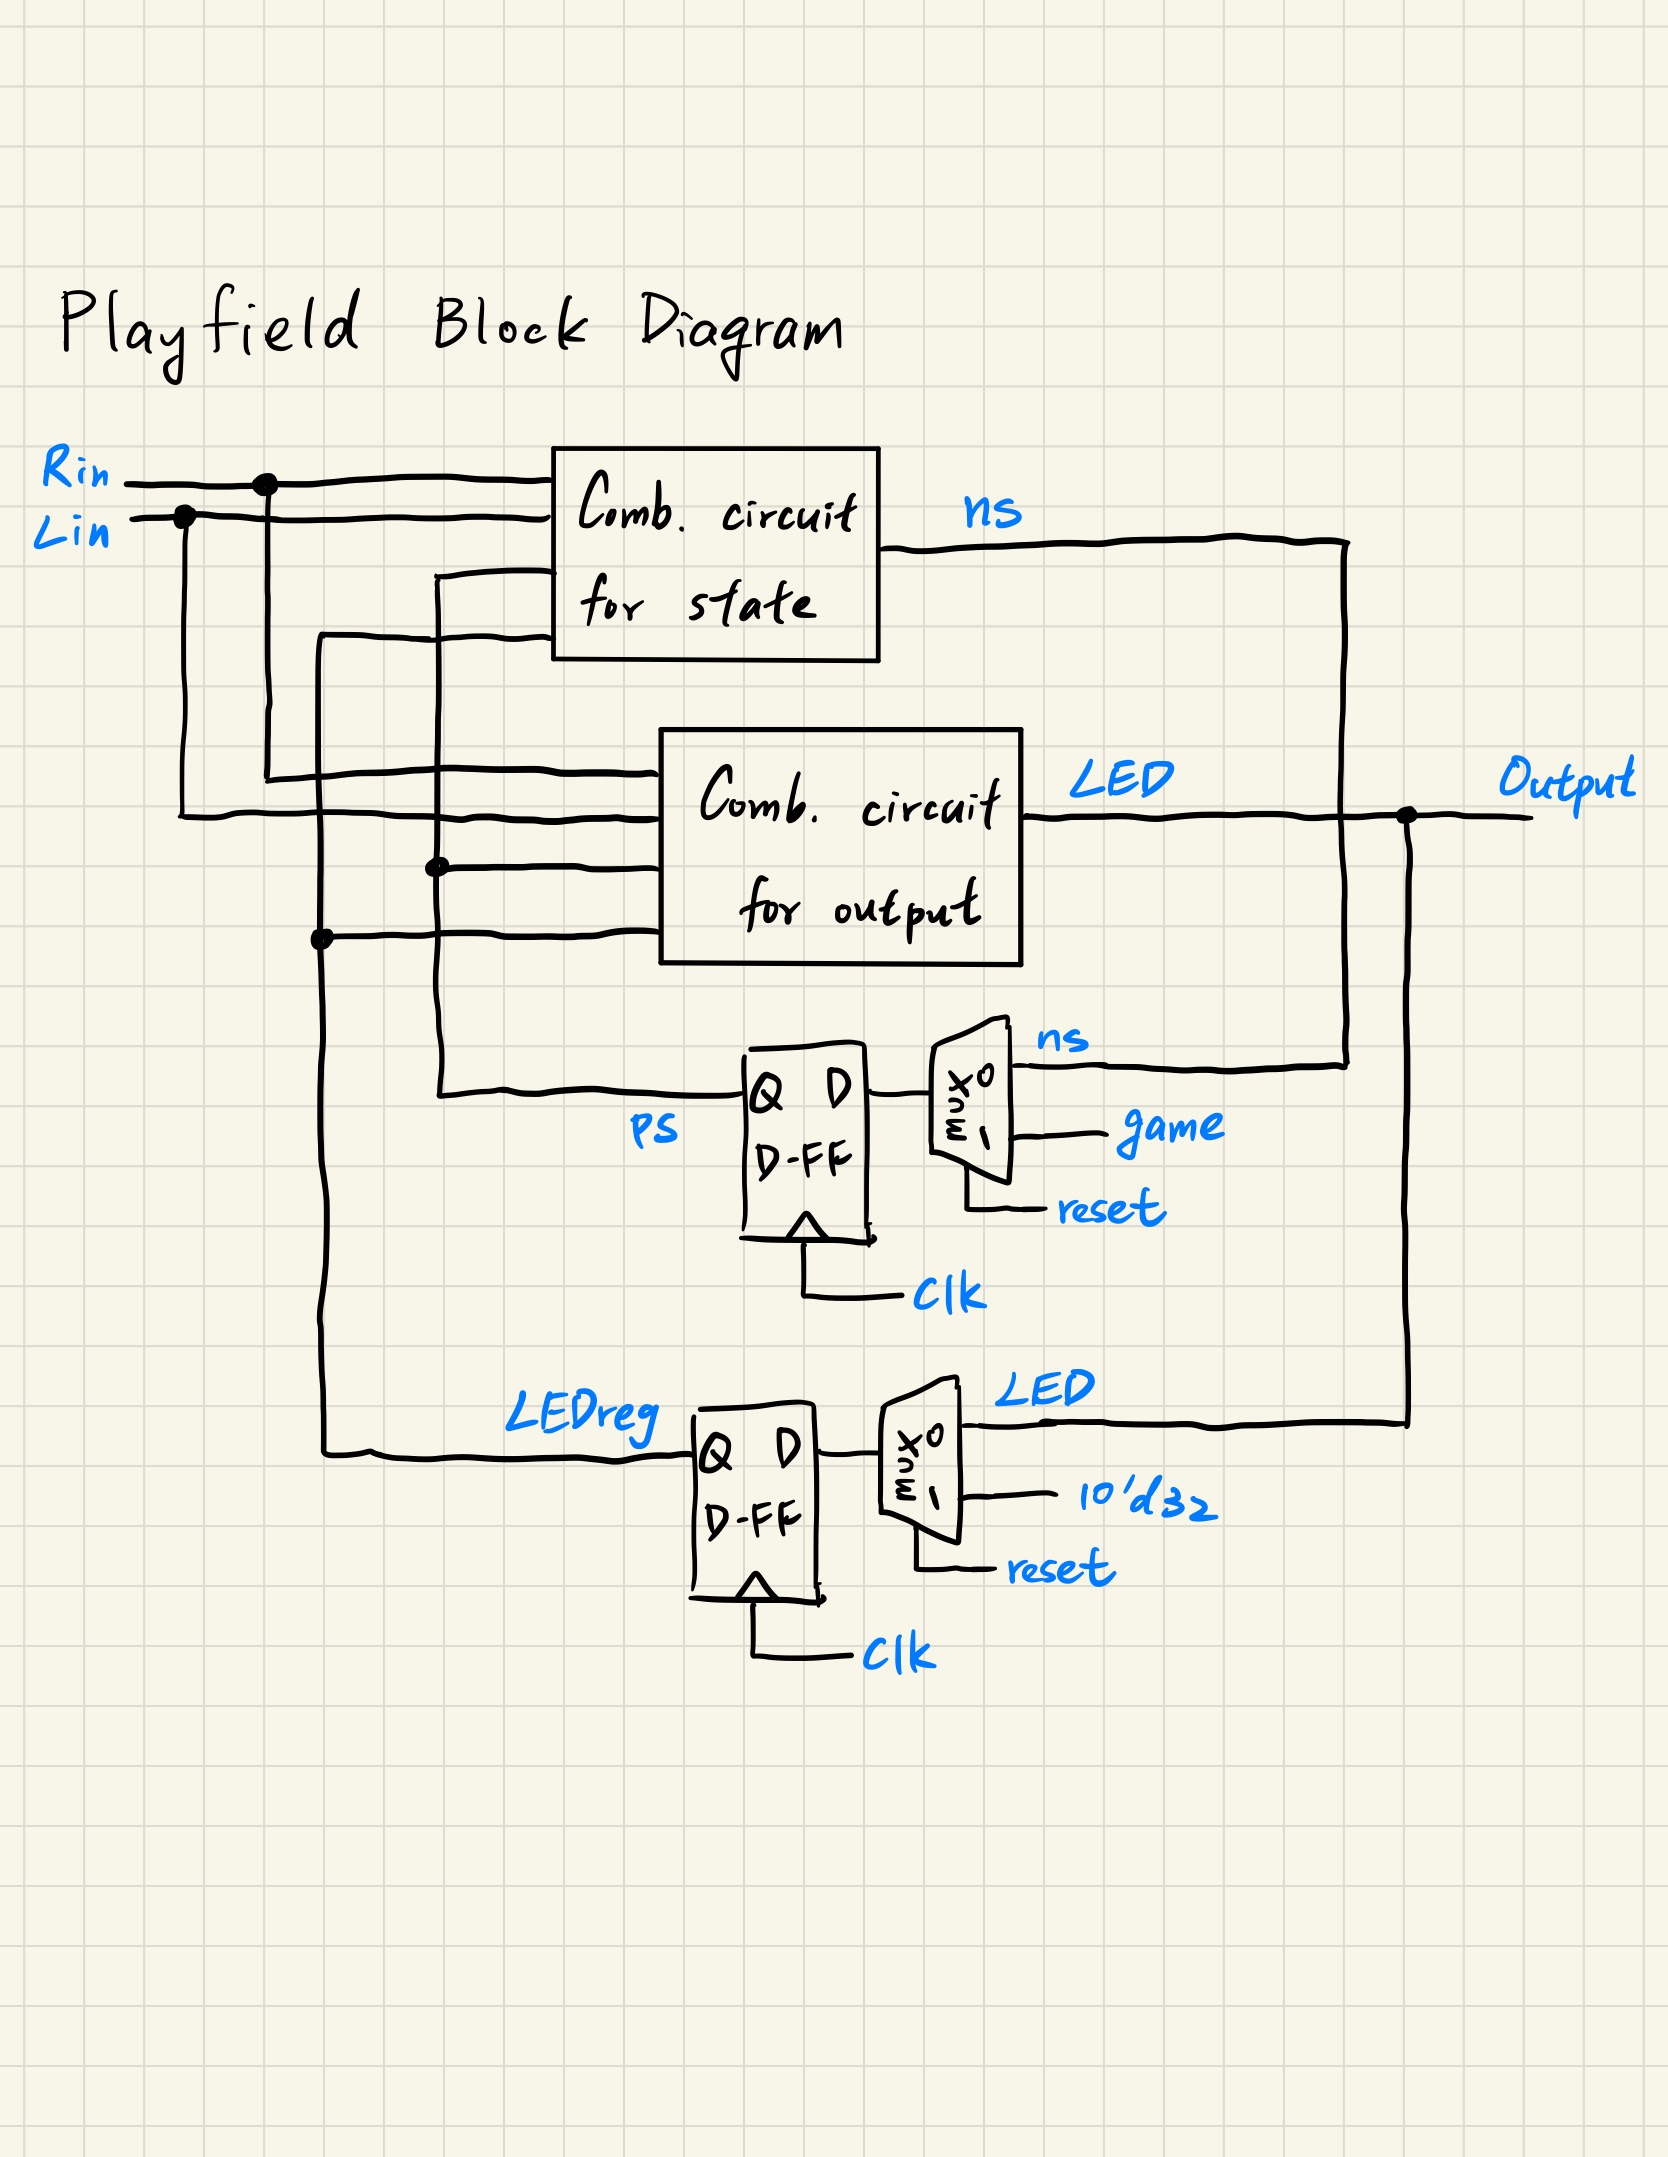 Playfield Block Diagram
Rin
Lin
Comb. circuit
for state
ns
Comb. circuit
for output
LED
Output
Q D
D-FF
mux
0
1
ns
game
reset
PS
Clk
LEDreg
Q D
D-FF
mux
0
1
LED
10'd32
reset
Clk